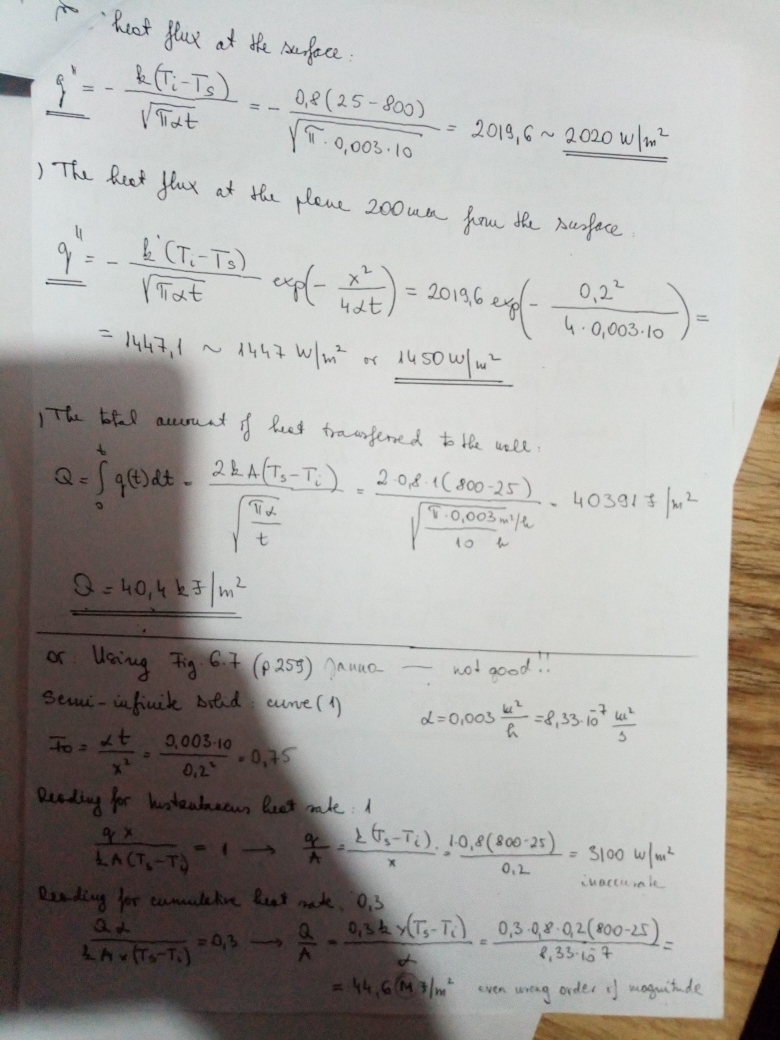 heat flux at the surface:
q'' = - k(Ti-Ts) / √(παt) = - 0,8(25-800) / √(π·0,003·10) = 2019,6 ~ 2020 W/m²
) The heat flux at the plane 200mm from the surface:
q'' = - k(Ti-Ts) / √(παt) exp(- x² / 4αt) = 2019,6 exp(- 0,2² / 4·0,003·10) =
= 1447,1 ~ 1447 W/m² or 1450 W/m²
) The total amount of heat transferred to the wall:
Q = ∫₀ᵗ q(t)dt = 2kA(Ts-Ti) / √(πα / t) = 2·0,8·1(800-25) / √(π·0,003 m²/h / 10 h) = 40391 J/m²
Q = 40,4 kJ/m²
or: Using Fig 6.7 (p259) Janna — not good!!
Semi-infinite solid: curve (1)
α = 0,003 m²/h = 8,33·10⁻⁷ m²/s
Fo = αt / x² = 0,003·10 / 0,2² = 0,75
Reading for instantaneus heat rate: 1
qx / kA(Ts-Ti) = 1 → q/A = k(Ts-Ti) / x = 1·0,8(800-25) / 0,2 = 3100 W/m²
inaccurate
Reading for cumulative heat rate: 0,3
Qα / kAx(Ts-Ti) = 0,3 → Q/A = 0,3kx(Ts-Ti) / α = 0,3·0,8·0,2(800-25) / 8,33·10⁻⁷ =
= 44,6 MJ/m² even wrong order of magnitude